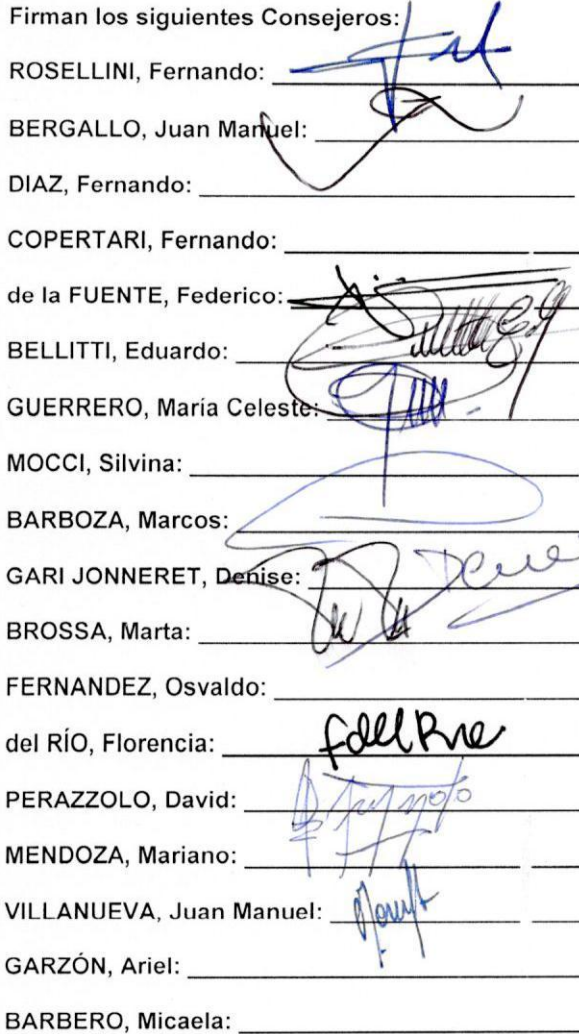 Firman los siguientes Consejeros:
ROSELLINI, Fernando:
BERGALLO, Juan Manuel:
DIAZ, Fernando:
COPERTARI, Fernando:
de la FUENTE, Federico:
BELLITTI, Eduardo:
GUERRERO, María Celeste:
MOCCI, Silvina:
BARBOZA, Marcos:
GARI JONNERET, Denise:
BROSSA, Marta:
FERNANDEZ, Osvaldo:
del RÍO, Florencia:
PERAZZOLO, David:
MENDOZA, Mariano:
VILLANUEVA, Juan Manuel:
GARZÓN, Ariel:
BARBERO, Micaela: